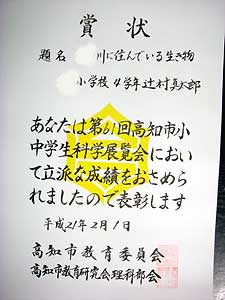 賞状
題名 川に住んでいる生き物
小学校 4学年 辻村真太郎
あなたは第61回高知市小
中学生科学展覧会におい
て立派な成績をおさめら
れましたので表彰します
平成21年2月1日
高知市教育委員会
高知市教育研究会理科部会